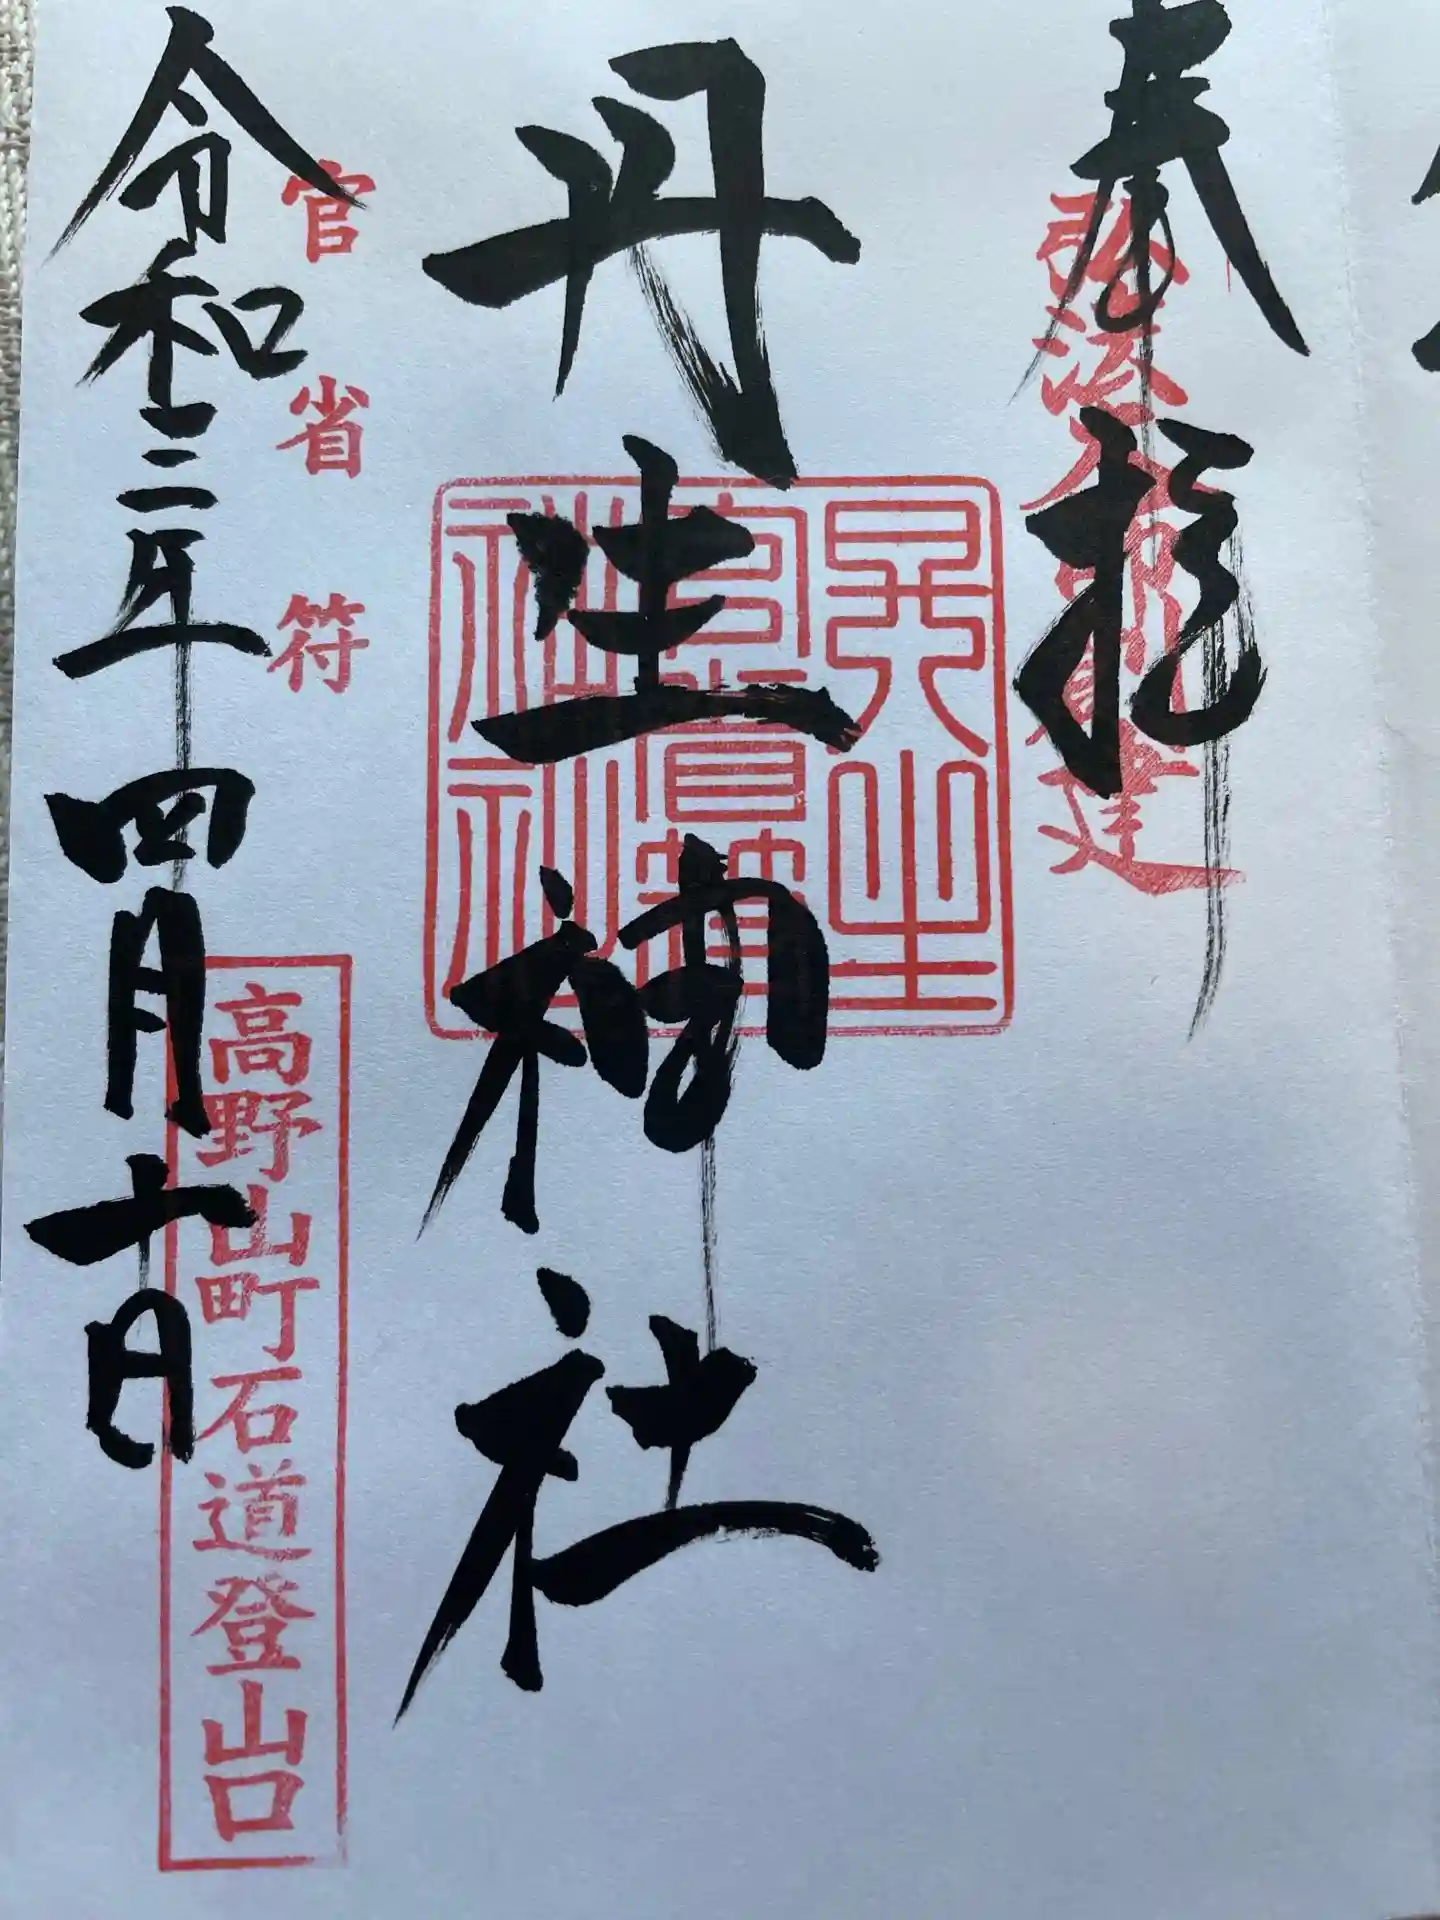 奉拝
弘法大師創建
丹生神社
丹生
官省符
神社
官省符
高野山町石道登山口
令和三年四月十日